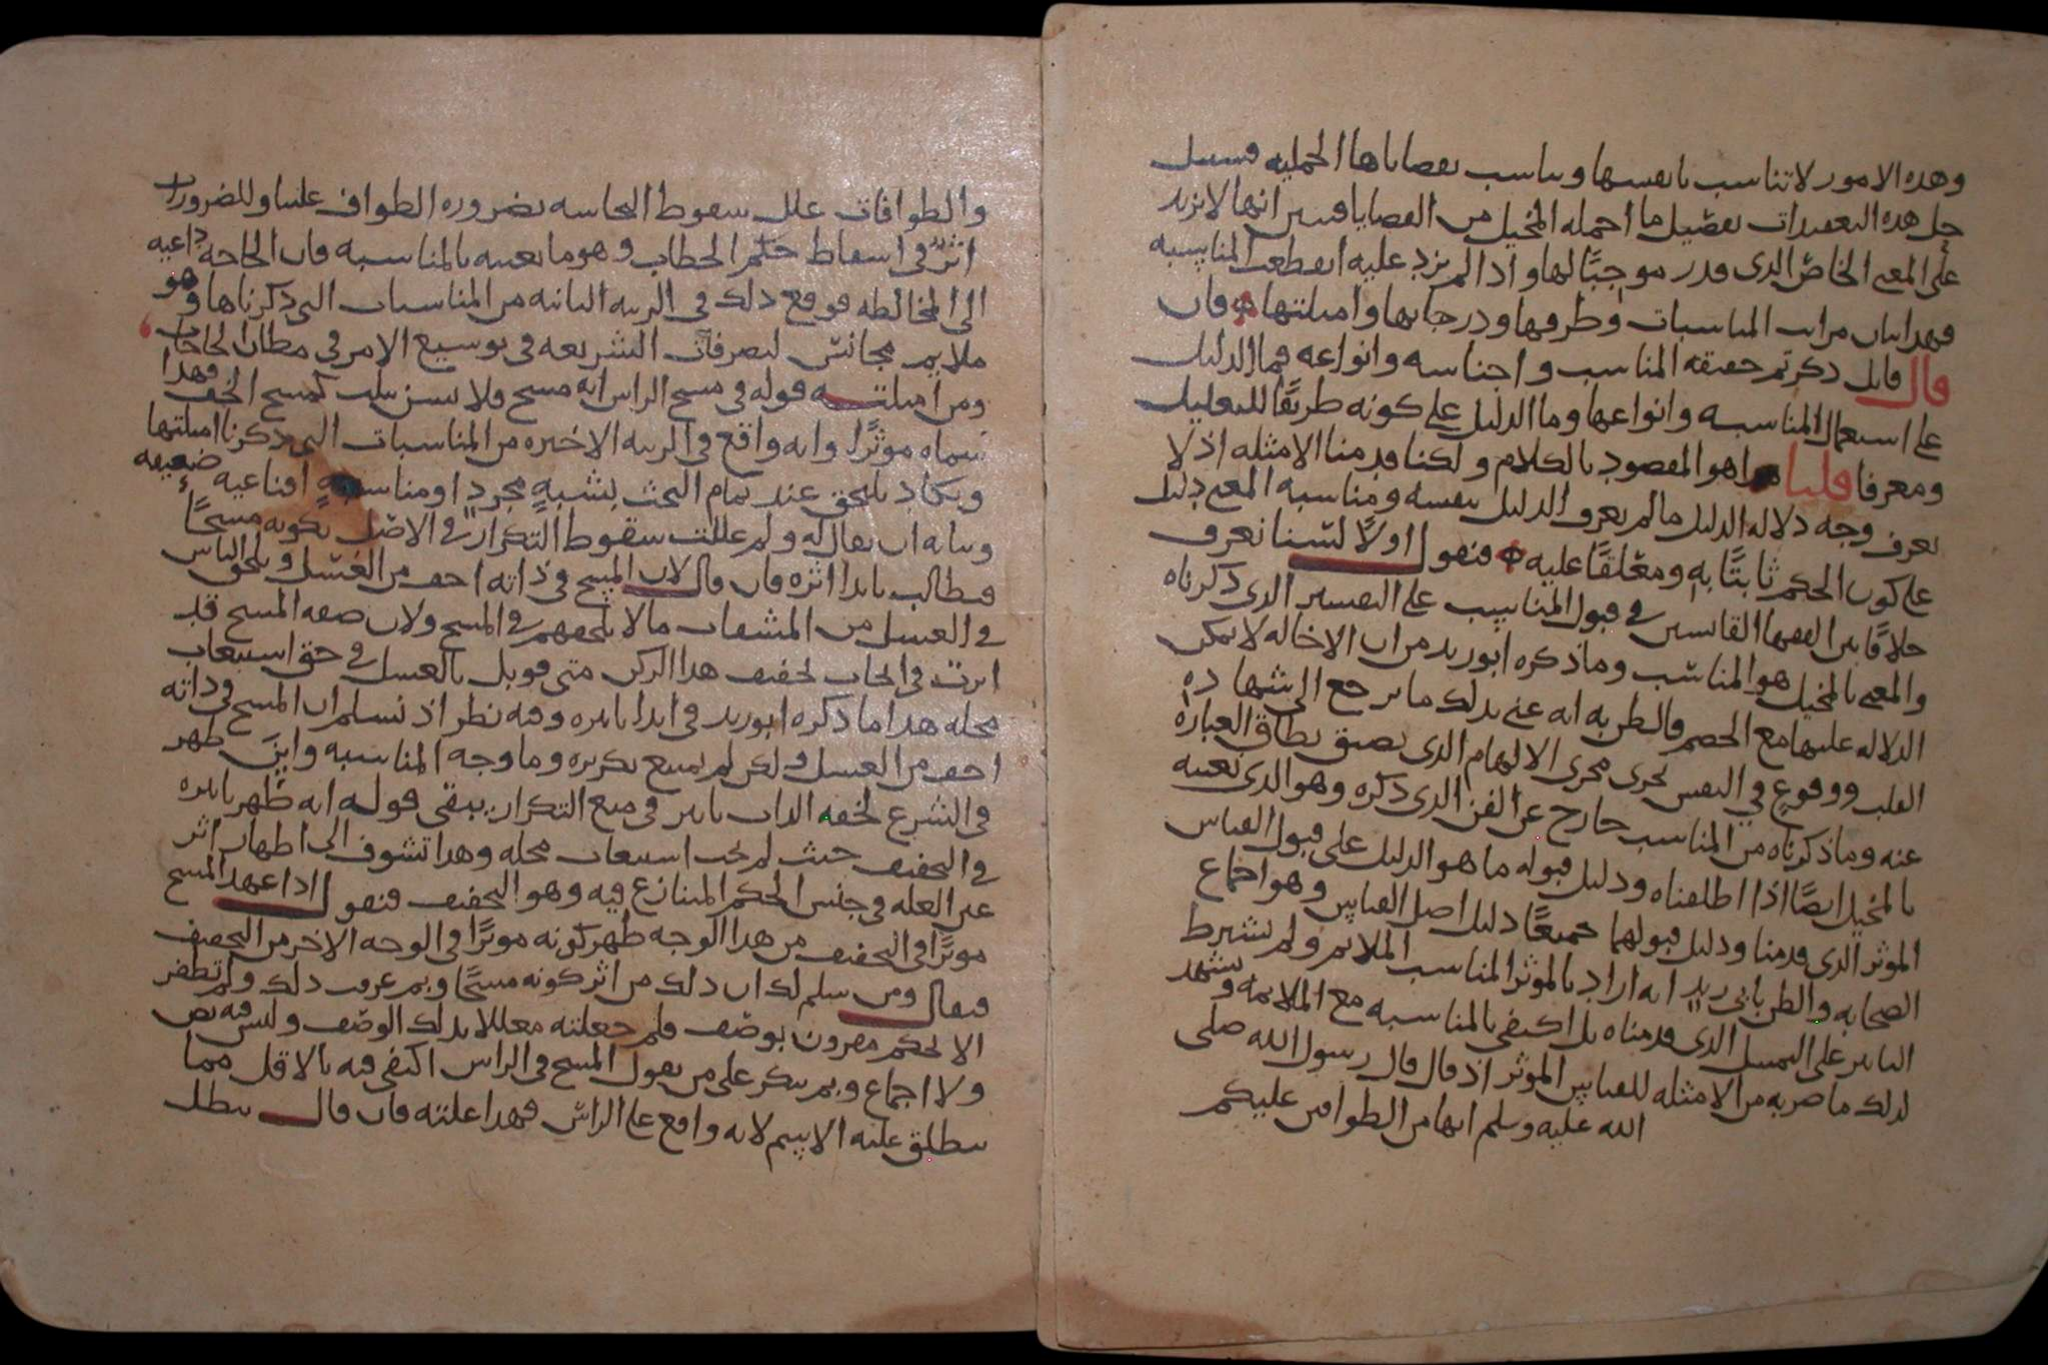 وهذه الامور لا تتناسب بانفسها وتناسب بقضاياها الجملية فسبيل
حل هذه التعقيدات تفصيل ما اجمله المخيل من القضايا فتبين انها لا تزيد
على المعنى الخاص الذى قدر موجبًا لها واذا لم يزد عليه انقطعت المناسبه
فهذا بيان مراتب المناسبات وطرقها ودرجاتها وامثلتها فان
قال قائل ذكرتم حقيقه المناسب واجناسه وانواعه فما الدليل
على استعمال المناسبه وانواعها وما الدليل على كونه طريقًا للتعليل
ومعرفا قلنا هذا هو المقصود بالكلام ولكنا قدمنا الامثله اذ لا
يعرف وجه دلاله الدليل ما لم يعرف الدليل بنفسه ومناسبه المعنى دليل
على كون الحكم ثابتًا به ومعلقًا عليه فنقول اولًا لسنا نعرف
خلافًا بين الفقها القايسين في قبول المناسب على التفسير الذى ذكرناه
والمعنى بالمخيل هو المناسب وما ذكره ابو زيد من ان الاخاله لا يمكن
الدلاله عليها مع الخصم فالظن به انه عنى بذلك ما يرجع الى شهاده
القلب ووقوع في النفس يجرى مجرى الالهام الذى يضيق نطاق العباره
عنه وما ذكرناه من المناسب خارج عن الفن الذى ذكره وهو الذى نعنيه
بالمخيل ايضًا اذا اطلقناه ودليل قبوله ما هو الدليل على قبول القياس
الموثر الذى قدمنا ودليل قبولهما جميعًا دليل اصل القياس وهو اجماع
الصحابه والظن بابى زيد انه اراد بالموثر المناسب الملايم ولم يشترط
التاثير على التمسل الذى قدمناه بل اكتفى بالمناسبه مع الملايمه ويشهد
لذلك ما ضربه من الامثله للقياس الموثر اذ قال قال رسول الله صلى
الله عليه وسلم انها من الطوافين عليكم
والطوافات علل سقوط النجاسه بضروره الطواف علينا وللضرورات
اثر في اسقاط حكم الخطاب وهو ما نعنيه بالمناسبه فان الحاجه داعيه
الى المخالطه فوقع ذلك في الرتبه الثانيه من المناسبات التى ذكرناها وهو
ملايم مجانس لتصرفات الشريعه فى توسيع الامر فى مظان الحاجات
ومن امثلته قوله فى مسح الراس انه مسح فلا يسن تثليثه كمسح الخف فهذا
سماه موثرًا وانه واقع فى الرتبه الاخيره من المناسبات التى ذكرنا امثلتها
ويكاد يلتحق عند تمام البحث بشبه مجرد او مناسبه اقناعيه ضعيفه
وبيانه ان يقال له ولم عللت سقوط التكرار في الاصل بكونه مسحًا
فيطالب بابدا اثره فان قال لان المسح في ذاته اخف من الغسل ويلحق الناس
في الغسل من المشقات ما لا يلحقهم في المسح ولان صفه المسح قد
اثرت فى ايجاب تخفيف هذا الركن متى قوبل بالغسل في حق استيعاب
محله هذا ما ذكره ابو زيد فى ابدا تاثيره وفيه نظر اذ نسلم ان المسح فى ذاته
اخف من الغسل ولكن لم يمتنع تكريره وما وجه المناسبه واين ظهر
فى الشرع لخفه الذات تاثير فى منع التكرار يبقى قوله انه ظهر تاثيره
في التخفيف حيث لم يجب استيعاب محله وهذا تشوف الى اظهار اثر
عين العله فى جنس الحكم المتنازع فيه وهو التخفيف فنقول اذا عهد المسح
موثرًا فى التخفيف من هذا الوجه ظهر كونه موثرًا فى الوجه الاخر من التخفيف
فيقال ومن يسلم لك ان ذلك من اثر كونه مسحًا وبم عرفت ذلك ولم تظفر
الا لحكم مقرون بوصف فلم جعلته معللا بذلك الوصف وليس فيه نص
ولا اجماع وبم تنكر على من يقول المسح فى الراس اكتفى فيه بالاقل مما
ينطلق عليه الاسم لانه واقع على الراس فهذا علته فان قال يبطل